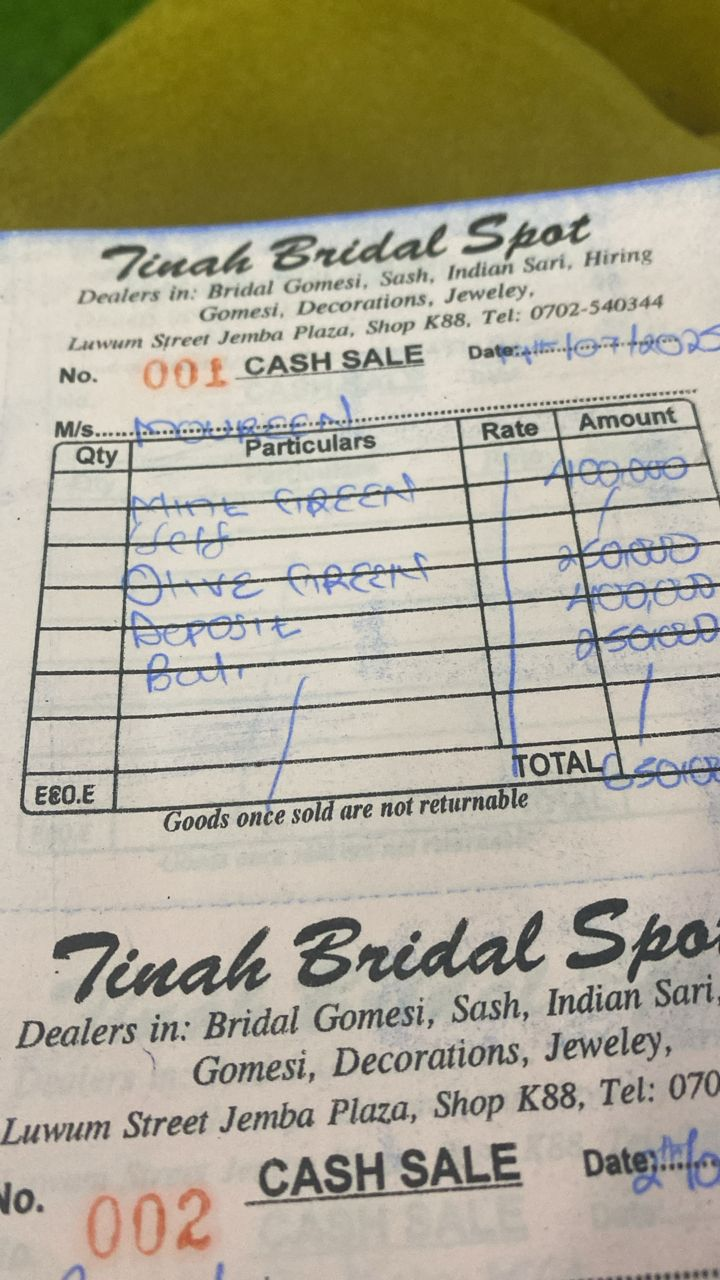 Tinah Bridal Spot
Dealers in: Bridal Gomesi, Sash, Indian Sari, Hiring
Gomesi, Decorations, Jeweley,
Luwum Street Jemba Plaza, Shop K88, Tel: 0702-540344
No. 001 CASH SALE Date: /07/2025
M/s. MOUREEN
Qty Particulars Rate Amount
MINT GREEN 400,000
Self
OLIVE GREEN 250,000
DEPOSIT 400,000
Bal. 250,000
TOTAL
E&O.E
Goods once sold are not returnable
Tinah Bridal Spo
Dealers in: Bridal Gomesi, Sash, Indian Sari,
Gomesi, Decorations, Jeweley,
Luwum Street Jemba Plaza, Shop K88, Tel: 070
No. 002 CASH SALE Date: